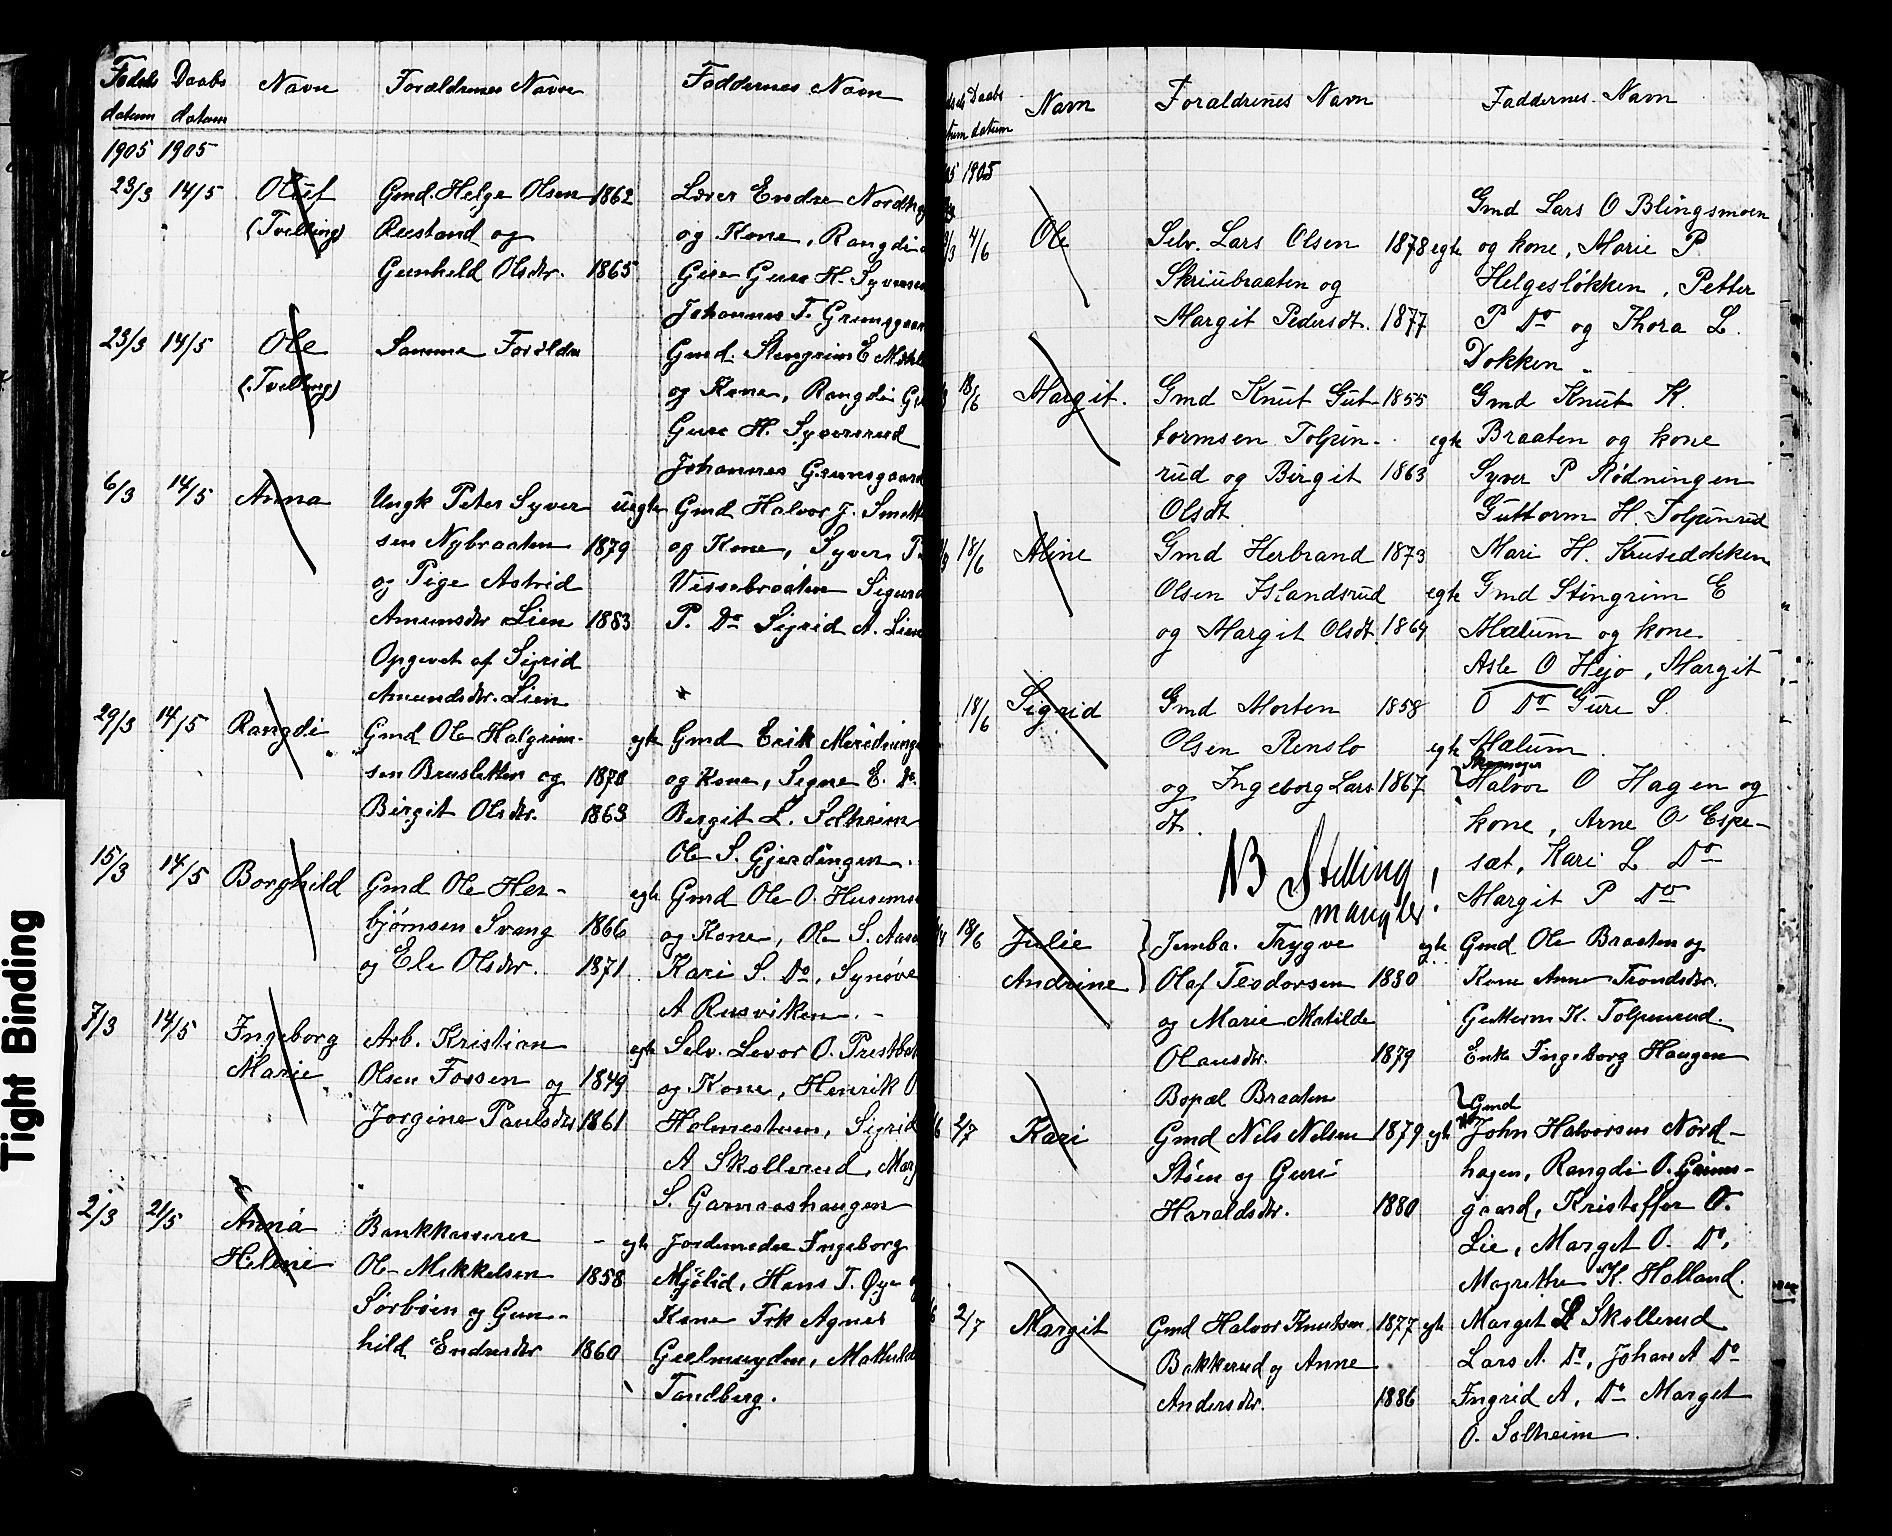 Fødsels Daabs Navn Forældrenes Navn Faddernes Navn
datum datum
1905 1905
23/3 14/5 Oluf Gmd. Helge Olsen 1862 Lærer Endre Nordhag
(Tvilling) Rustand og og Kone, Rangdi
Gunhild Olsdtr. 1865 Guri H. Syversen
Johannes T. Grimsgaar
23/3 14/5 Ole Samme Forældre Gmd. Stengrim E
(Tvilling) og Kone, Rangdi
Gure H. Syversrud
Johannes Grimsgaard
6/3 14/5 Anna Ungk Peter Syver uegte Gmd Halvor J.
sen Nybraaten 1879 og Kone, Syver
og Pige Astrid Vissebraaten Sigurd
Amunsdtr Lien 1883 P. Do Sigrid A. Lien
Opgevet af Sigrid
Amundsdtr. Lien
29/3 14/5 Rangdi Gmd Ole Halgrim- egte Gmd Erik
sen Brusletten og 1878 og Kone, Signe E. Do
Birgit Olsdtr. 1863 Bergit L. Solheim
Ole S. Gjerdingen.
15/3 14/5 Borghild Gmd Ole Her- egte Gmd Ole O.
bjørnsen Svang 1866 og Kone, Ole S.
og Eli Olsdtr. 1871 Kari S. Do, Synøve
A Rusviken.
7/3 14/5 Ingeborg Arb. Kristian egte Selv. Levor O.
Marie Olsen Fossen og 1849 og Kone, Henrik O
Jorgine Paulsdtr 1861 Halmestuen, Sigrid
A Skollerud,
S. Garnaashaugen
2/3 21/5 Anna Bankkasserer - egte Jordemoder Ingeborg
Helene Ole Mikkelsen 1858 Mjølid, Hans T. Øye
Sørbøen og Gun- Kone Frk Agnes
hild Endresdtr 1860 Geelmuyden, Mathilde
Tandberg.
Daabs Navn Forældrenes Navn Faddernes Navn
datum
1905
Gmd Lars O Blingsmoen
4/6 Ole Selv. Lars Olsen 1878 egte og kone, Marie P.
Skriubraaten og Helgesløkken, Petter
Margit Pedersdt. 1877 P Do og Thora L.
Dokken.
18/6 Margit. Gmd Knut Gut- 1855 Gmd Knut K.
tormsen Tolpin- egte Braaten og kone
rud og Birgit 1863 Syver P Rødningen
Olsdt. Guttorm H. Tolpinrud
18/6 Aline Gmd Herbrand 1873 Mari H. Krusedokken
Olsen Islandsrud egte Gmd Stingrim E
og Margit Olsdt. 1869 Mælum og kone
Asle O Hejo, Margit
18/6 Sigrid Gmd Morten 1858 O Do Guri S
Olsen Renslo egte Mælum.
og Ingeborg Lars 1867 Halvor O Hagen og
dt. kone, Arne O Espe-
sæt, Kari L Do
NB Stilling Margit P Do
mangler!
18/6 Julie Trygve egte Gmd Ole Braaten og
Andrine Olaf Teodorsen 1880 Kone Anne Trondsdtr.
og Marie Matilde Guttorm K. Tolpinrud.
Olausdtr. 1879 Enke Ingeborg Haugen
Bopæl Braaten
Gmd
2/7 Kari Gmd Nils Nilsen 1879 egte John Halvorsen Nord-
Støen og Guri hagen, Rangdi O. Grims-
Haraldsdtr. 1880 gaard, Kristoffer O.
Lie, Marget O. Do,
Magrethe K. Holland.
2/7 Margit Gmd Halvor Knutsen 1877 egte Marget L Skollerud
Bakkerud og Anne Lars A. Do, Johan A Do
Andersdtr. 1886 Ingrid A. Do Marget
O. Solheim.
Tight Binding